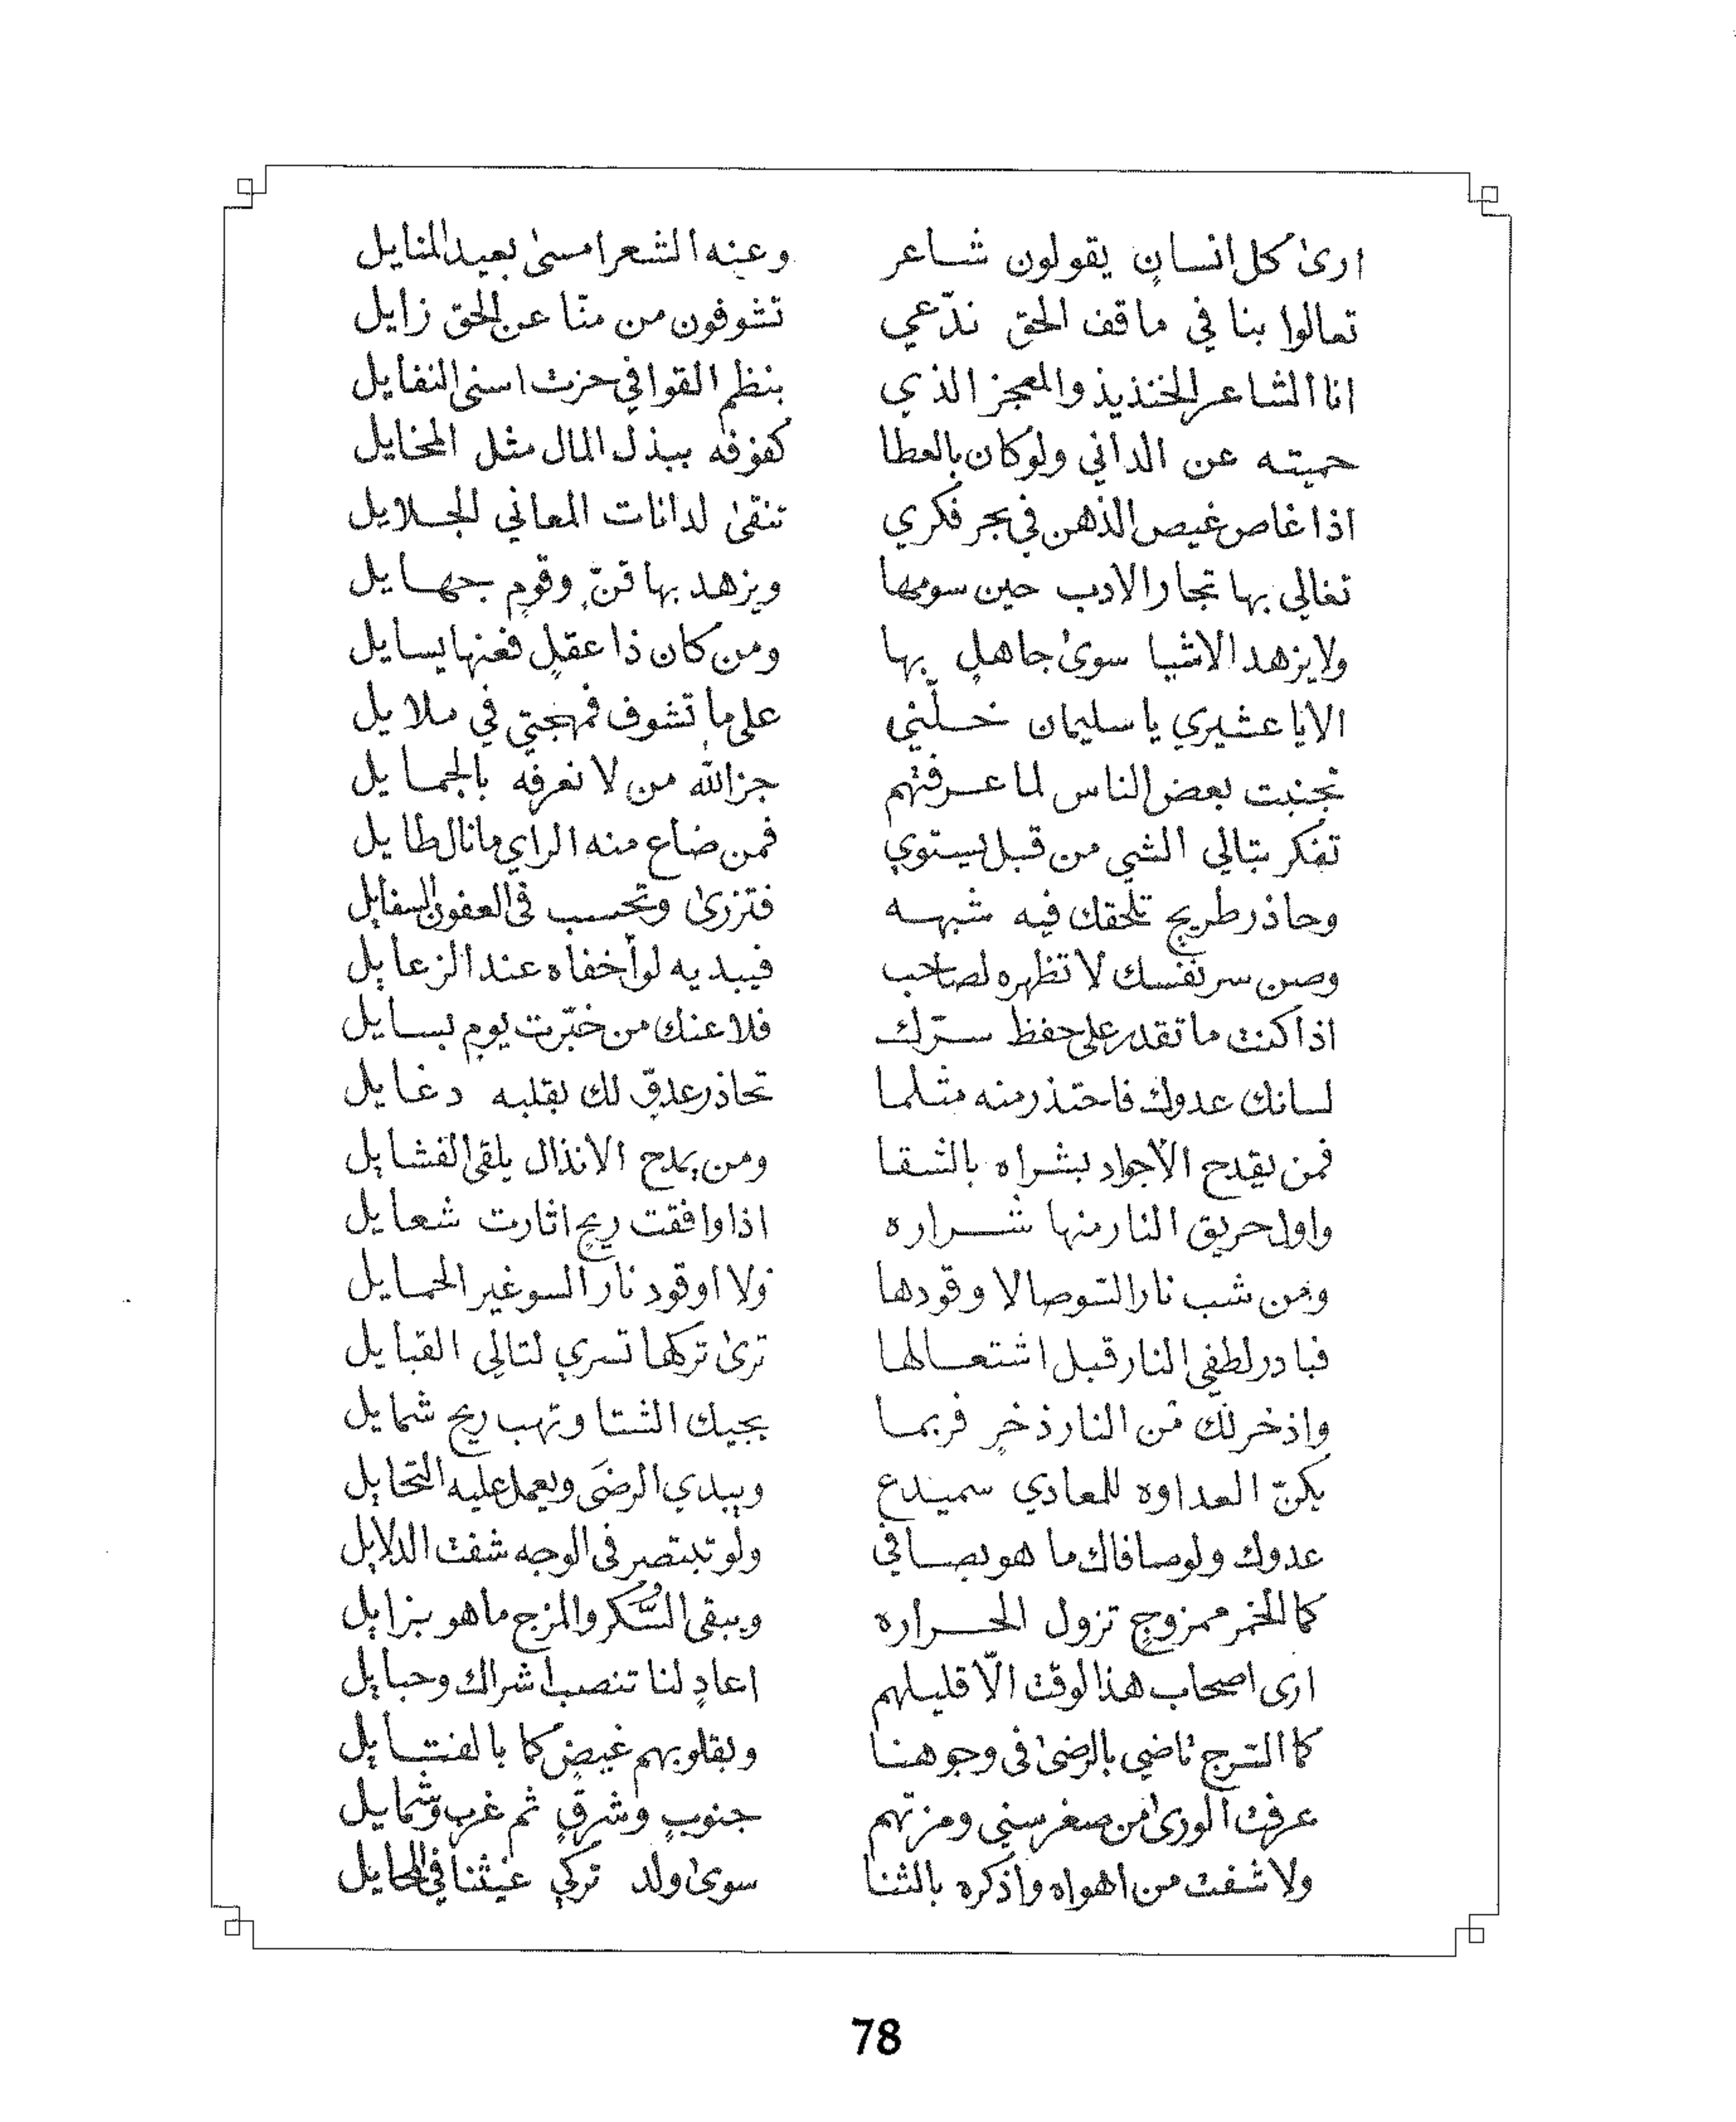 ارىٰ كل انسانٍ يقولون شاعر وعنه الشعر امسىٰ بعيد المنايل
تعالوا بنا في ماقف الحق ندّعي تشوفون من منّا عن الحق زايل
انا الشاعر الخنذيذ والمعجز الذي بنظم القوافي حزت اسنى النفايل
حميته عن الداني ولو كان بالعطا كفوفه ببذل المال مثل المخايل
اذا غاص غيص الذهن في بحر فكري تنقىٰ لدانات المعاني الجلايل
تغالي بها تجار الادب حين سومها ويزهد بها قنٍّ وقومٍ جهايل
ولا يزهد الاشيا سوىٰ جاهلٍ بها ومن كان ذا عقلٍ فعنها يسايل
الا يا عشيري يا سليمان خلّني على ما تشوف فمهجتي في ملايل
تجنبت بعض الناس لما عرفتهم جز الله من لا نعرفه بالجمايل
تفكر بتالي الشي من قبل يستوي فمن ضاع منه الراي ما نال طايل
وحاذر طريجٍ تلحقك فيه شبهه فتزرىٰ وتحسب في العفون السفايل
وصن سر نفسك لا تظهره لصاحب فيبديه لو أخفاه عند الزعايل
اذا كنت ما تقدر على حفظ سرّك فلا عنك من خبّرت يومٍ بسايل
لسانك عدوك فاحتذر منه مثلما تحاذر عدوٍّ لك بقلبه دغايل
فمن يقدح الأجواد بشراه بالشقا ومن يمدح الانذال يلقى الفشايل
واول حريق النار منها شراره اذا وافقت ريحٍ اثارت شعايل
ومن شب نار التو صالا وقودها ولا اوقود نار السو غير الحمايل
فبادر لطفي النار قبل اشتعالها ترىٰ تركها تسري لتالي القبايل
واذخر لك من النار ذخرٍ فربما يجيك الشتا وتهب ريح شمايل
يكنّ العداوه للمعادي سميدع ويبدي الرضَى ويعمل عليه التحايل
عدوك ولو صافاك ما هو بصافي ولو تبتصر في الوجه شفت الدلايل
كما الخمر ممزوجٍ تزول الحراره ويبقى السُّكر والمزج ما هو بزايل
ارى اصحاب هذا الوقت الاّ قليلهم اعادٍ لنا تنصب اشراك وحبايل
كما الترج ناضي بالرضىٰ في وجوهنا وبقلوبهم غيضٍ كما بالفتايل
عرفت الورىٰ من صغر سني ومزتهم جنوبٍ وشرقٍ ثم غربٍ وشمايل
ولا شفت من اهواه واذكره بالثنا سوىٰ ولد تركي غيثنا في المحايل
78